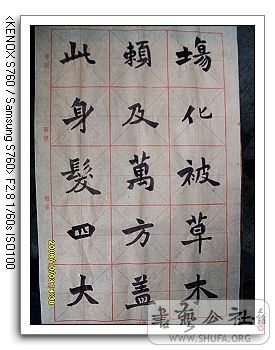 場化被草木
賴及萬方盖
此身髮四大
<KENOX S760 / Samsung S760> F2.8 1/60s ISO100
書藝公社
WWW.SHUFA.ORG